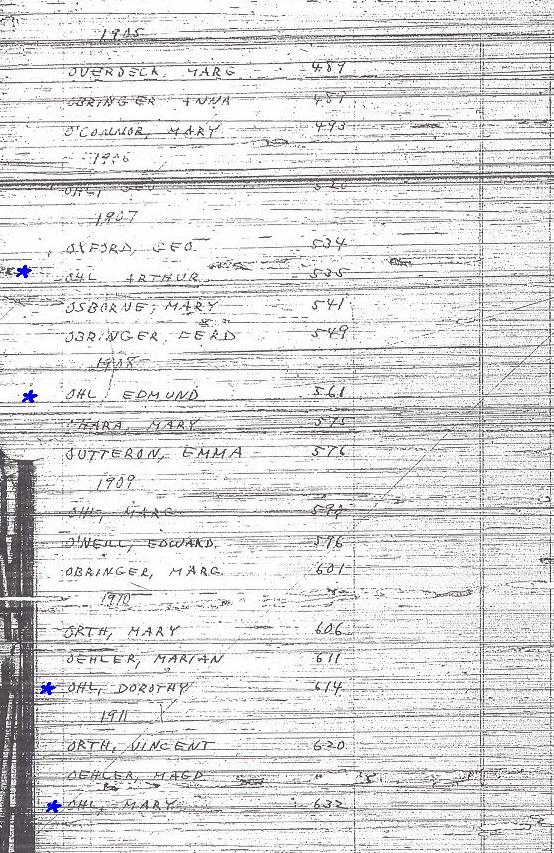 1905
OVERDECK, MARG 487
OBRINGER ANNA 487
O'CONNOR, MARY 493
1906
OHL, GEO 520
1907
OXFORD, GEO. 534
OHL ARTHUR 535
OSBORNE, MARY 541
OBRINGER FERD 549
1908
OHL EDMUND 561
O'HARA, MARY 575
OUTTERON, EMMA 576
1909
OHL, MARG
O'NEILL, EDWARD 596
OBRINGER, MARG 601
1910
ORTH, MARY 606
OEHLER, MARIAN 611
OHL, DOROTHY 614
1911
ORTH, VINCENT 620
OEHLER, MAGD
OHL, MARY 632